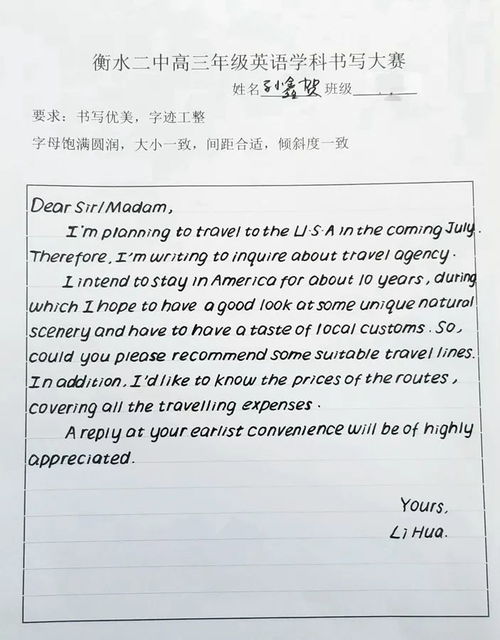 衡水二中高三年级英语学科书写大赛
姓名 孙鑫贺 班级
要求：书写优美，字迹工整
字母饱满圆润，大小一致，间距合适，倾斜度一致
Dear Sir/Madam,
I'm planning to travel to the U·S·A in the coming July.
Therefore, I'm writing to inquire about travel agency.
I intend to stay in America for about 10 years, during
which I hope to have a good look at some unique natural
scenery and have to have a taste of local customs. So,
could you please recommend some suitable travel lines.
In addition, I'd like to know the prices of the routes,
covering all the travelling expenses.
A reply at your earlist convenience will be of highly
appreciated.
Yours,
Li Hua.